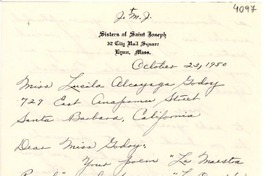 4097
J. M. J.
Sisters of Saint Joseph
32 City Hall Square
Lynn, Mass.
October 23, 1950
Miss Lucila Alcayaga Godoy
729 East Anapamu Street
Santa Barbara, California
Dear Miss Godoy:
Your poem "La Maestra